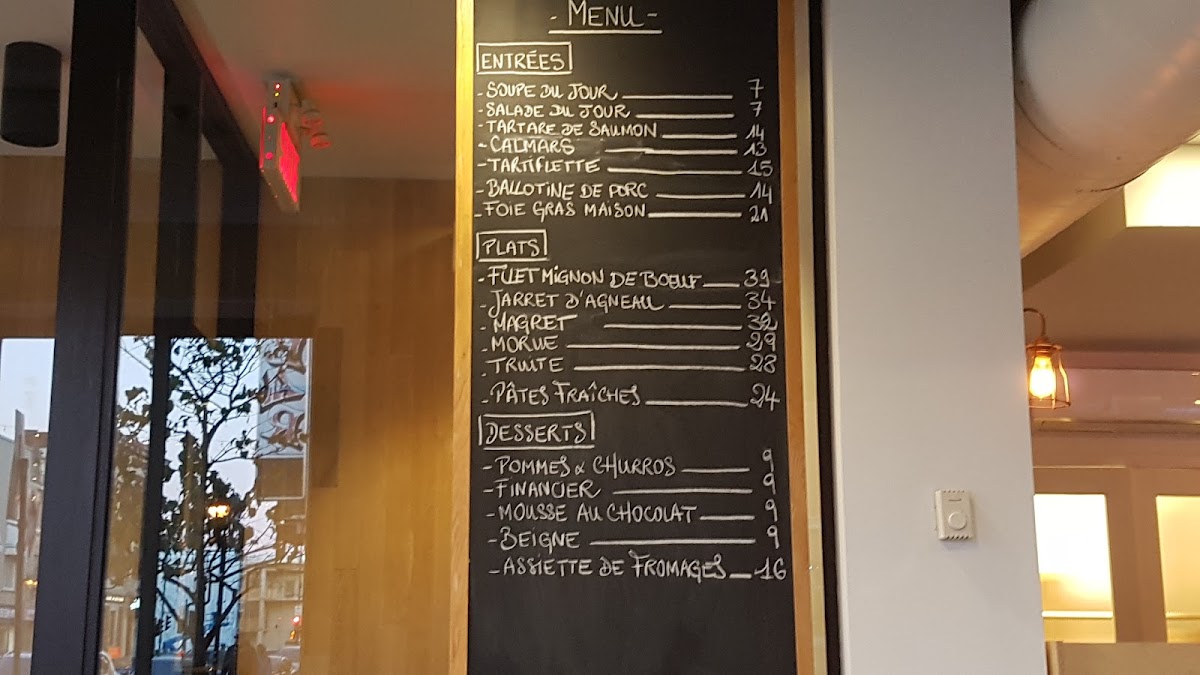 - MENU -
ENTRÉES
- SOUPE DU JOUR 7
- SALADE DU JOUR 7
- TARTARE DE SAUMON 14
- CALMARS 13
- TARTIFLETTE 15
- BALLOTINE DE PORC 14
- FOIE GRAS MAISON 21
PLATS
- FILET MIGNON DE BOEUF 39
- JARRET D'AGNEAU 34
- MAGRET 32
- MORUE 29
- TRUITE 28
- PÂTES FRAÎCHES 24
DESSERTS
- POMMES & CHURROS 9
- FINANCIER 9
- MOUSSE AU CHOCOLAT 9
- BEIGNE 9
- ASSIETTE DE FROMAGES 16